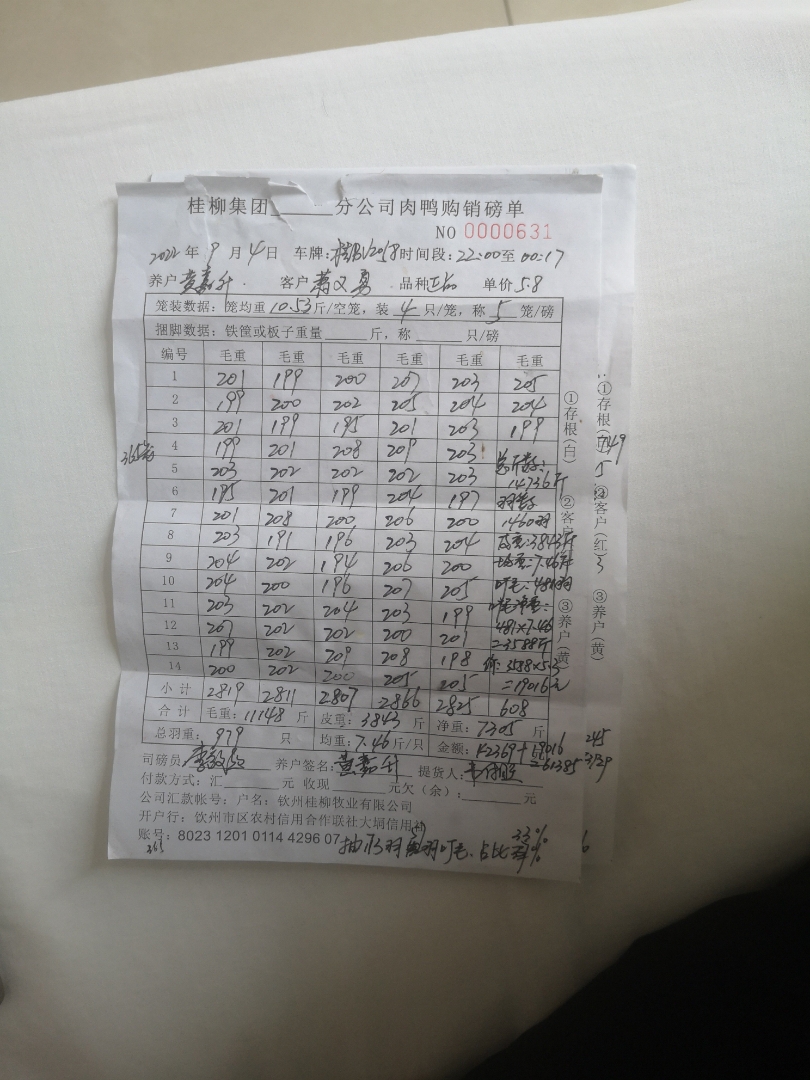 桂柳集团______分公司肉鸭购销磅单
NO 0000631
2022年9月4日 车牌: 时间段:22:00至00:17
养户黄嘉升 客户萧又勇 品种正品 单价5.8
笼装数据:笼均重10.53斤/空笼,装4只/笼,称5笼/磅
捆脚数据:铁筐或板子重量______斤,称______只/磅
编号 毛重 毛重 毛重 毛重 毛重 毛重
1 201 199 200 207 203 205
2 199 200 202 205 204 204
3 201 199 195 201 203 199
4 199 201 208 209 203 总斤数:
5 203 202 202 202 203 14736斤
6 195 201 199 204 197 羽数
7 201 208 200 206 200 1460羽
8 203 191 196 203 204 皮重:3843斤
9 204 202 194 206 200 均重:7.46斤
10 204 200 196 207 205 叮毛:481羽
11 203 202 204 203 199 叮毛净重:
12 207 202 202 200 201 481×7.46
13 199 202 209 208 198 =3588斤
14 200 202 200 205 205 3588×5.3
=19016元
小计 2819 2811 2807 2866 2825 608
合计 毛重:11148斤 皮重:3843斤 净重:7305斤
总羽重:979只 均重:7.46斤/只 金额:42369+19016
=61385
司磅员: 养户签名:黄嘉升 提货人:
付款方式:汇______元 收现______元欠(余):______元
公司汇款帐号:户名:钦州桂柳牧业有限公司
开户行:钦州市区农村信用合作联社大垌信用社
账号:8023 1201 0114 4296 07
羽叮毛.占比 33%
365
①存根(白) ②客户 ③养户(黄)
①存根 ②客户(红) ③养户(黄)
749
5
3
245
3139
6